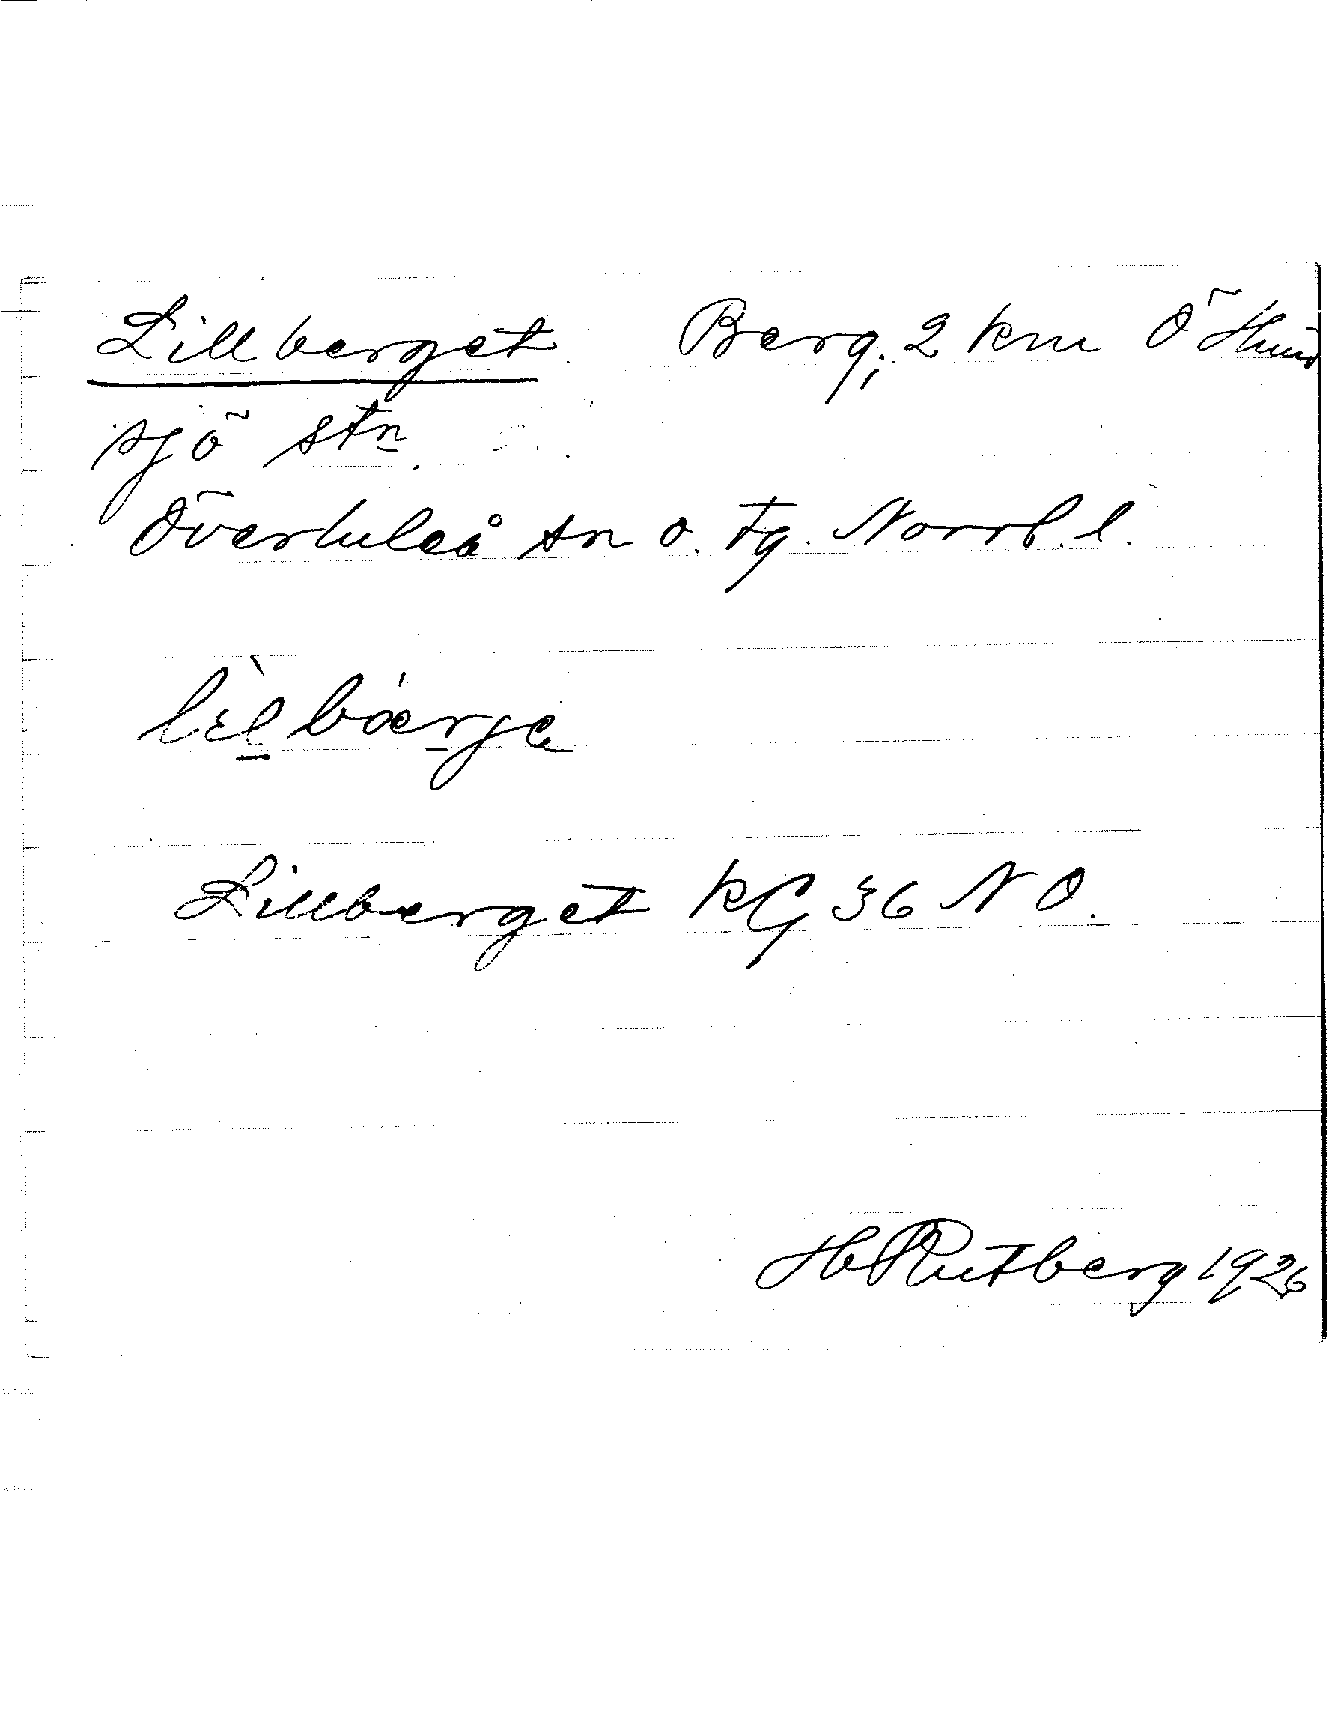 Lillberget. Berg, 2 km Ö Hund
sjö stn.
Överluleå sn o. tg. Norrb. l.
lìlbærjɛ
Lillberget KG 36 NO.
H Rutberg 1926